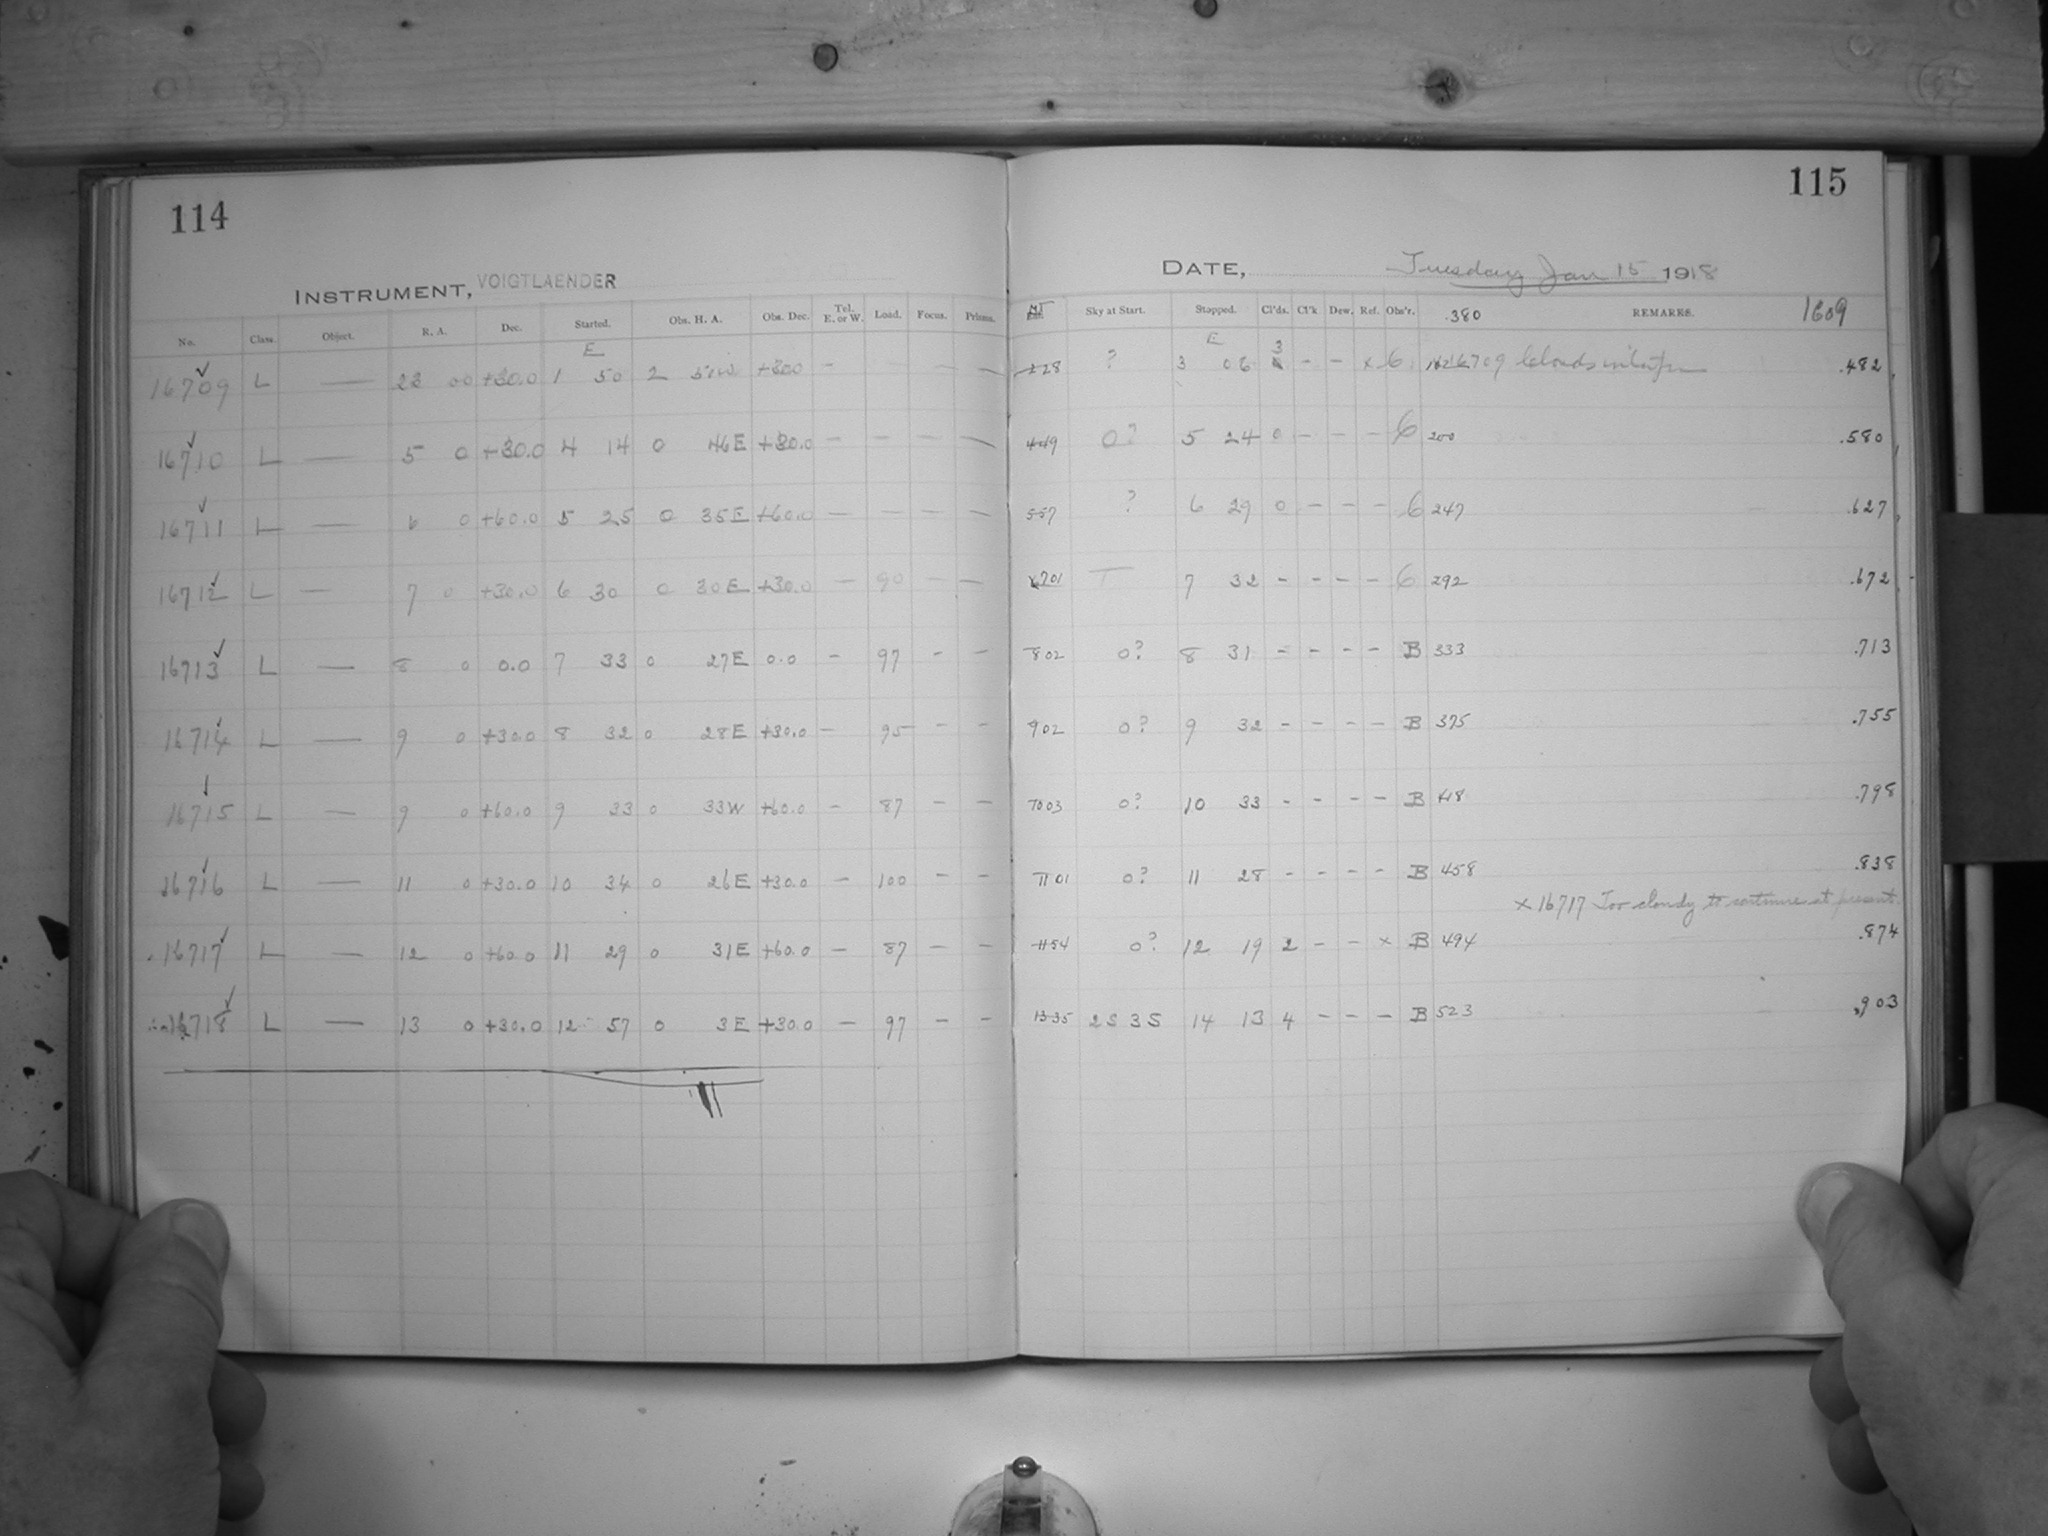 114
INSTRUMENT, VOIGTLAENDER
No. Class. Object. R. A. Dec. Started. Obs. H. A. Obs. Dec. Tel. E. or W. Load. Focus. Prisms.
E
16709 L — 23 00 +30.0 1 50 2 50W +30.0 - — —
16710 L — 5 0 +30.0 4 14 0 46E +30.0 — — — —
16711 L — 6 0 +60.0 5 25 0 35E +60.0 — — — —
16712 L — 7 0 +30.0 6 30 0 30E +30.0 — 90 — —
16713 L — 8 0 0.0 7 33 0 27E 0.0 - 97 - -
16714 L — 9 0 +30.0 8 32 0 28E +30.0 — 95 - -
16715 L — 9 0 +60.0 9 33 0 33W +60.0 - 87 - -
16716 L — 11 0 +30.0 10 34 0 26E +30.0 — 100 - -
16717 L — 12 0 +60.0 11 29 0 31E +60.0 — 87 — —
16718 L — 13 0 +30.0 12 57 0 3E +30.0 — 97 — -
115
DATE, Tuesday Jan 15 1918
MT Sky at Start. Stopped. Cl'ds. Cl'k Dew. Ref. Obs'r. .380 REMARKS. 1609
E
228 ? 3 06 3 - - x 6 16709 Clouds .482
449 0? 5 24 0 - - - 6 200 .580
557 ? 6 29 0 - - - 6 247 .627
701 T 7 32 - - - - 6 292 .672
802 0? 8 31 - - - - B 333 .713
902 0? 9 32 - - - - B 375 .755
1003 0? 10 33 - - - - B 418 .798
1101 0? 11 28 - - - - B 458 .838
x 16717 Too cloudy to continue at present.
1154 0? 12 19 2 - - x B 494 .874
1335 2S 3S 14 13 4 - - - B 523 .903